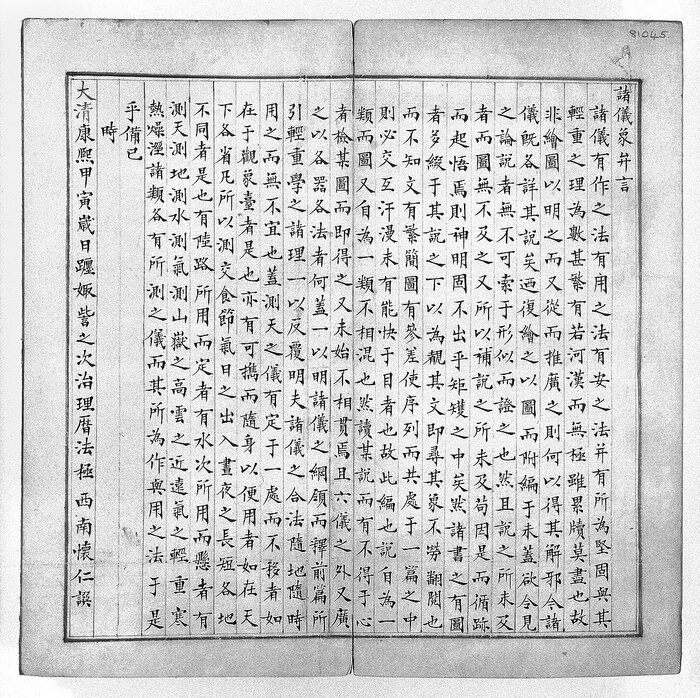 81045
諸儀象弁言
諸儀有作之法有用之法有安之法并有所為堅固與其
輕重之理為數甚繁有若河漢而無極雖累牘莫盡也故
非繪圖以明之而又從而推廣之則何以得其解邪今諸
儀旣各詳其說矣迺復繪之以圖而附編于末蓋欲令見
之論說者無不可索于形似而證之也然且說之所未及
者而圖無不及之又所以補說之所未及苟因是而循跡
而起悟焉則神明固不出乎矩矱之中矣然諸書之有圖
者多綴于其說之下以為觀其文即尋其象不勞翻閱也
而不知文有繁簡圖有參差使序列而共處于一篇之中
則必交互汗漫未有能快于目者也故此編也說自為一
類而圖又自為一類不相混也然讀某說而有不得于心
者檢某圖而即得之又未始不相貫焉且六儀之外又廣
之以各器各法者何蓋一以明諸儀之綱領而釋前篇所
引輕重學之諸理一以反覆明夫諸儀之合法隨地隨時
用之而無不宜也蓋測天之儀有定于一處而不移者如
在于觀象臺者是也亦有可攜而隨身以便用者如在天
下各省凡所以測交食節氣日之出入晝夜之長短各地
不同者是也有陸路所用而定者有水次所用而懸者有
測天測地測水測氣測山嶽之高雲之近遠氣之輕重寒
熱燥溼諸類各有所測之儀而其所為作與用之法于是
乎備已
時
大清康熙甲寅歲日躔娵訾之次治理曆法極西南懷仁譔